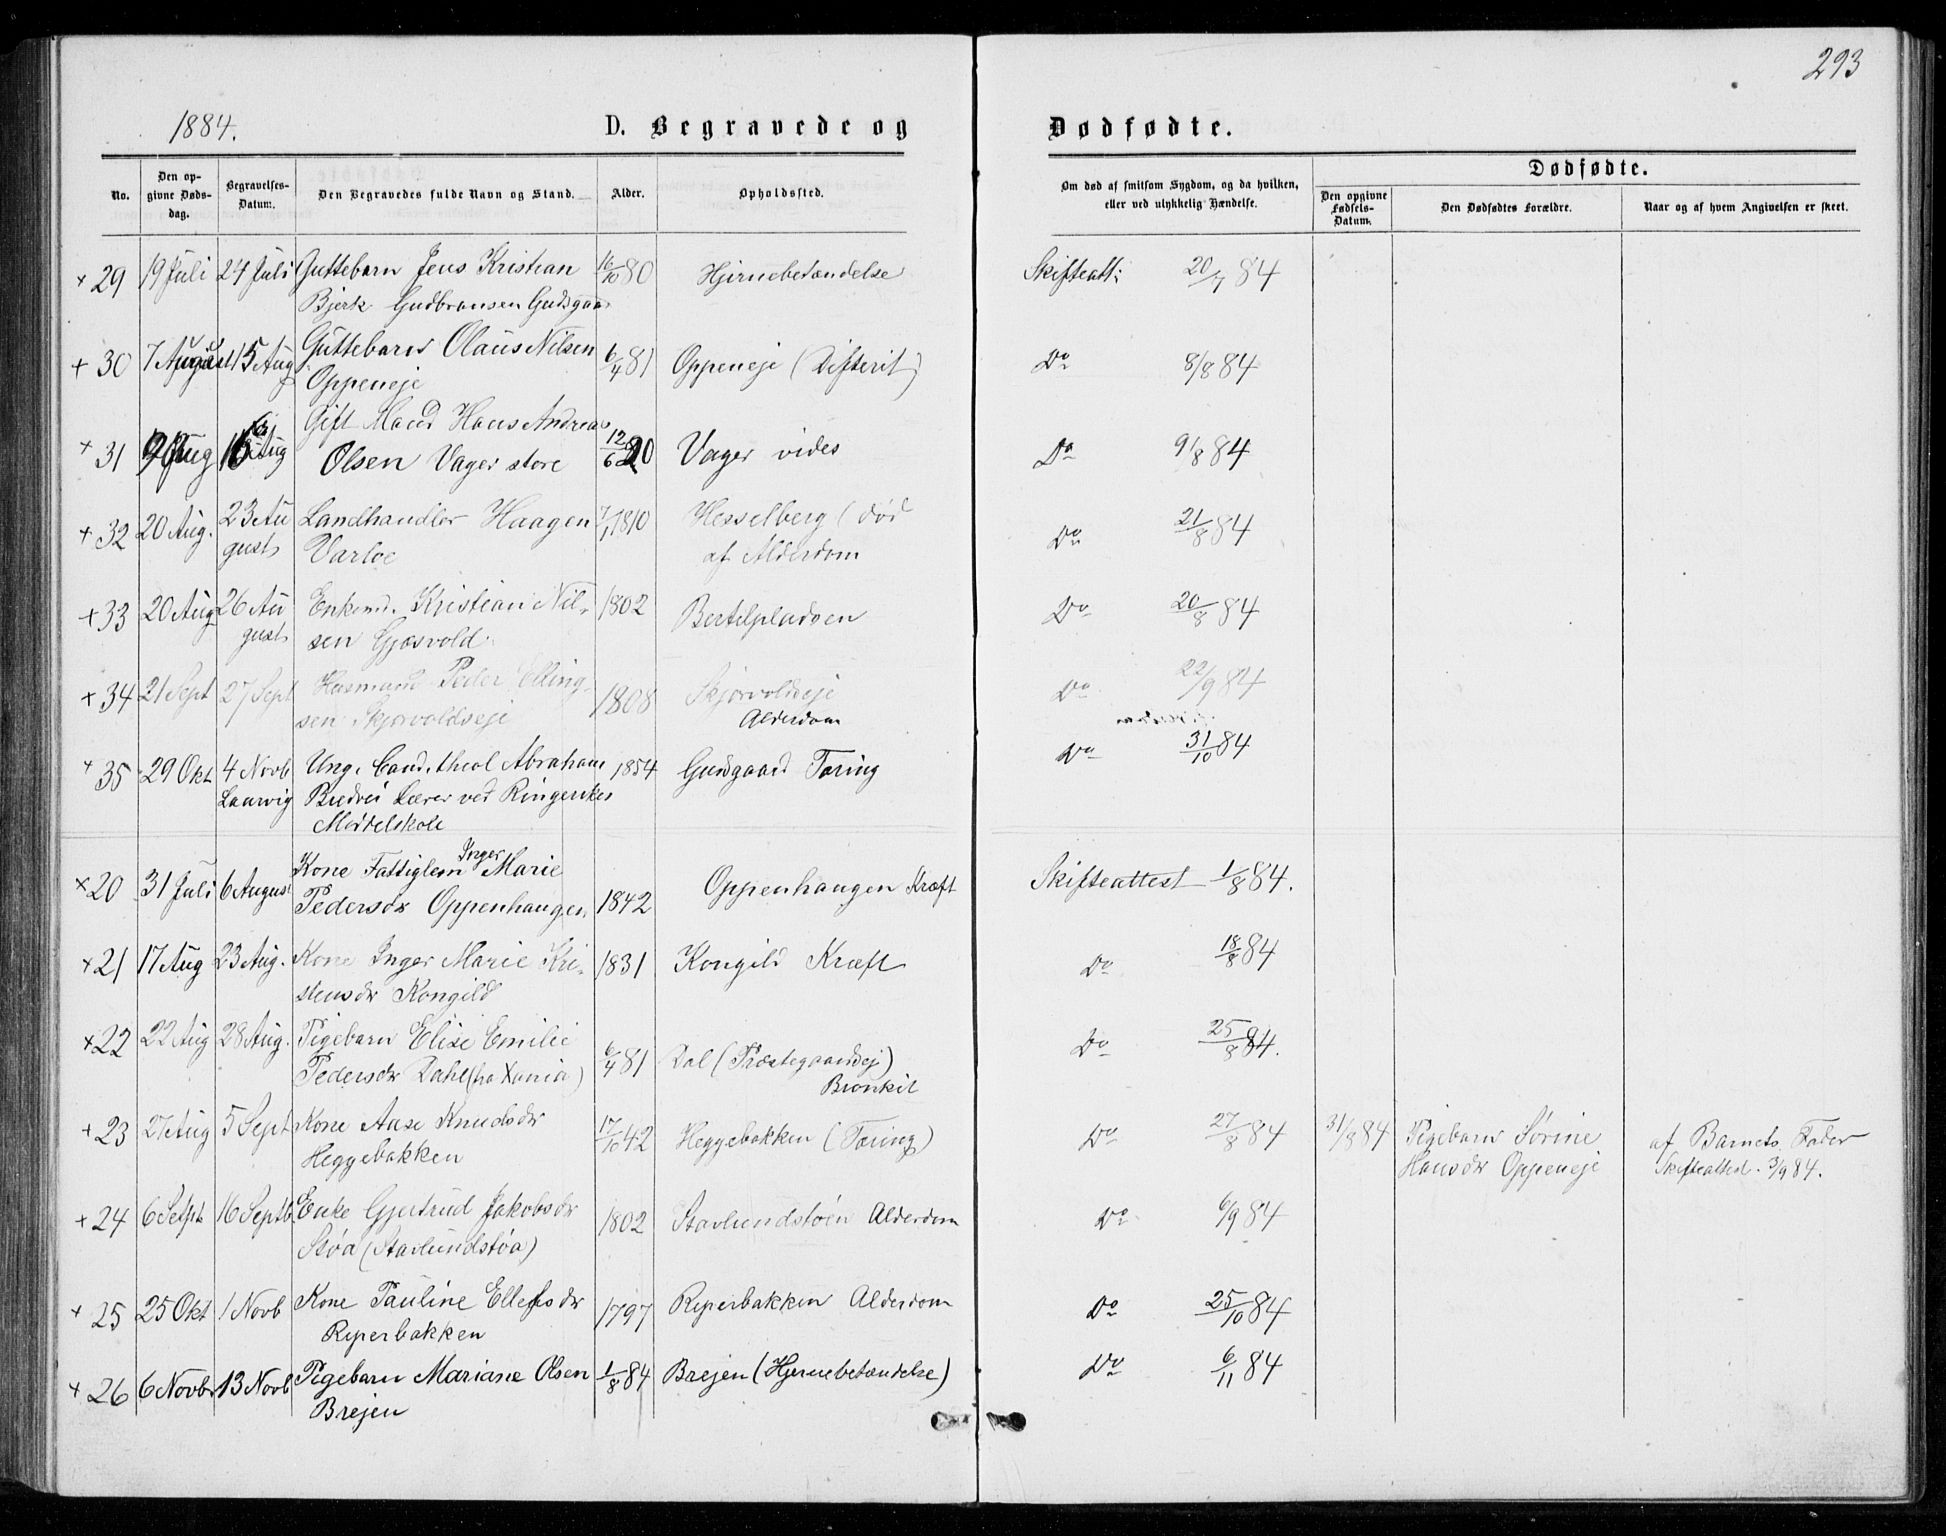 293
1884.
D. Begravede og Dødfødte.
No.
Den opgivne Dødsdag.
Begravelses-Datum.
Den Begravedes fulde Navn og Stand.
Alder.
Opholdssted.
Om død af smitsom Sygdom, og da hvilken, eller ved ulykkelig Hændelse.
Dødfødte.
Den opgivne Fødsels-Datum.
Den Dødfødtes Forældre.
Naar og af hvem Angivelsen er skeet.
+ 29 19 Juli 24 Juli Guttebarn Jens Kristian 16/10 80 Hjernebetændelse Skifteatt: 20/7 84
Bjerk Gudbransen Gudsgaar
+ 30 7 August 15 Aug Guttebarn Olaus Nilsen 6/4 81 Oppeneje (Difterit) Do 8/8 84
Oppeneje
+ 31 Aug 16 Aug Gift Mand Hans Andreas 12/6 20 Vager vides Do 9/8 84
Olsen Vager store
+ 32 20 Aug. 23 Au Landhandler Haagen 7/1 1810 Hesselberg (død Do 21/8 84
gust Varloe af Alderdom
+ 33 20 Aug 26 Au Enkemd. Kristian Nil- 1802 Bertilpladsen Do 20/8 84
gust sen Gjøsvold
+ 34 21 Sept 27 Sept Husmand Peder Elling- 1808 Skjørvoldseje Do 22/9 84
sen Skjørvoldseje Alderdom
+ 35 29 Okt 4 Novb Ung. Cand. theol Abraham 1854 Gusgaard Tæring Do 31/10 84
Laurvig Bredvei Lærer ved Ringerikes
Middelskole
+ 20 31 Juli 6 August Kone Fattiglem Inger Marie
Pedersdr Oppenhaugen 1842 Oppenhaugen Kræft Skifteattest 1/8 84.
+ 21 17 Aug 23 Aug. Kone Inger Marie Kri- 1831 Kongild Kræft Do 18/8 84
stensdr Kongild
+ 22 22 Aug 28 Aug. Pigebarn Elise Emilie
Pedersdr Dahl (fra Xania) 6/4 81 Dal (Præstegaardsej) Do 25/8 84.
Bronkit
+ 23 27 Aug 5 Sept Kone Aase Knudsdr 17/10 42 Heggebakken (Tæring) Do 27/8 84 31/8 84 Pigebarn Sørine af Barnets Fader
Heggebakken Hansdr Oppeneje Skifteattest. 3/9 84.
+ 24 6 Setpt 16 Septb Enke Gjertrud Jakobsdr 1802 Stavlundstøen Alderdom Do 6/9 84
Støa (Stavlundstøa)
+ 25 25 Okt 1 Novb Kone Pauline Ellefsdr 1797 Reperbakken Alderdom Do 25/10 84
Reperbakken
+ 26 6 Novbr 13 Novb Pigebarn Mariane Olsen 1/8 84 Brejen (Hjernebetændelse) Do 6/11 84
Brejen